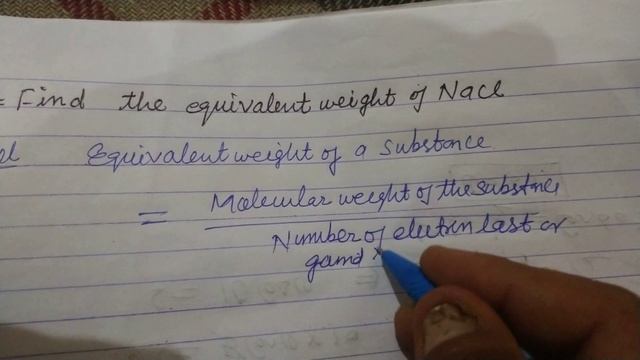 = Find the equivalent weight of Nacl
el Equivalent weight of a substance
= Molecular weight of the substnce
Number of electrn last or
gand